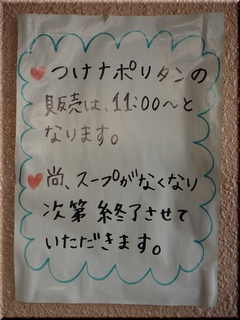 つけナポリタンの
販売は、11:00〜と
なります。
尚、スープがなくなり
次第 終了させて
いただきます。